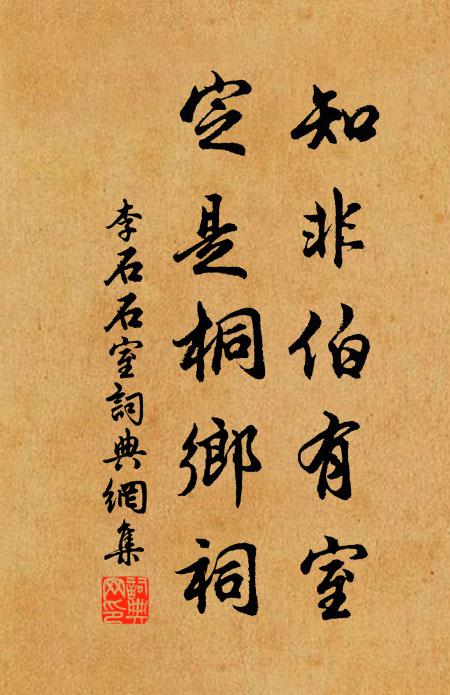 知非伯有室
定是桐鄉祠
李石石室詞典網集
詞典网印